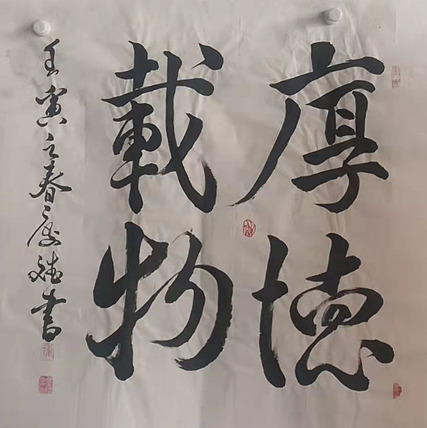 厚德
載物
壬寅之春書